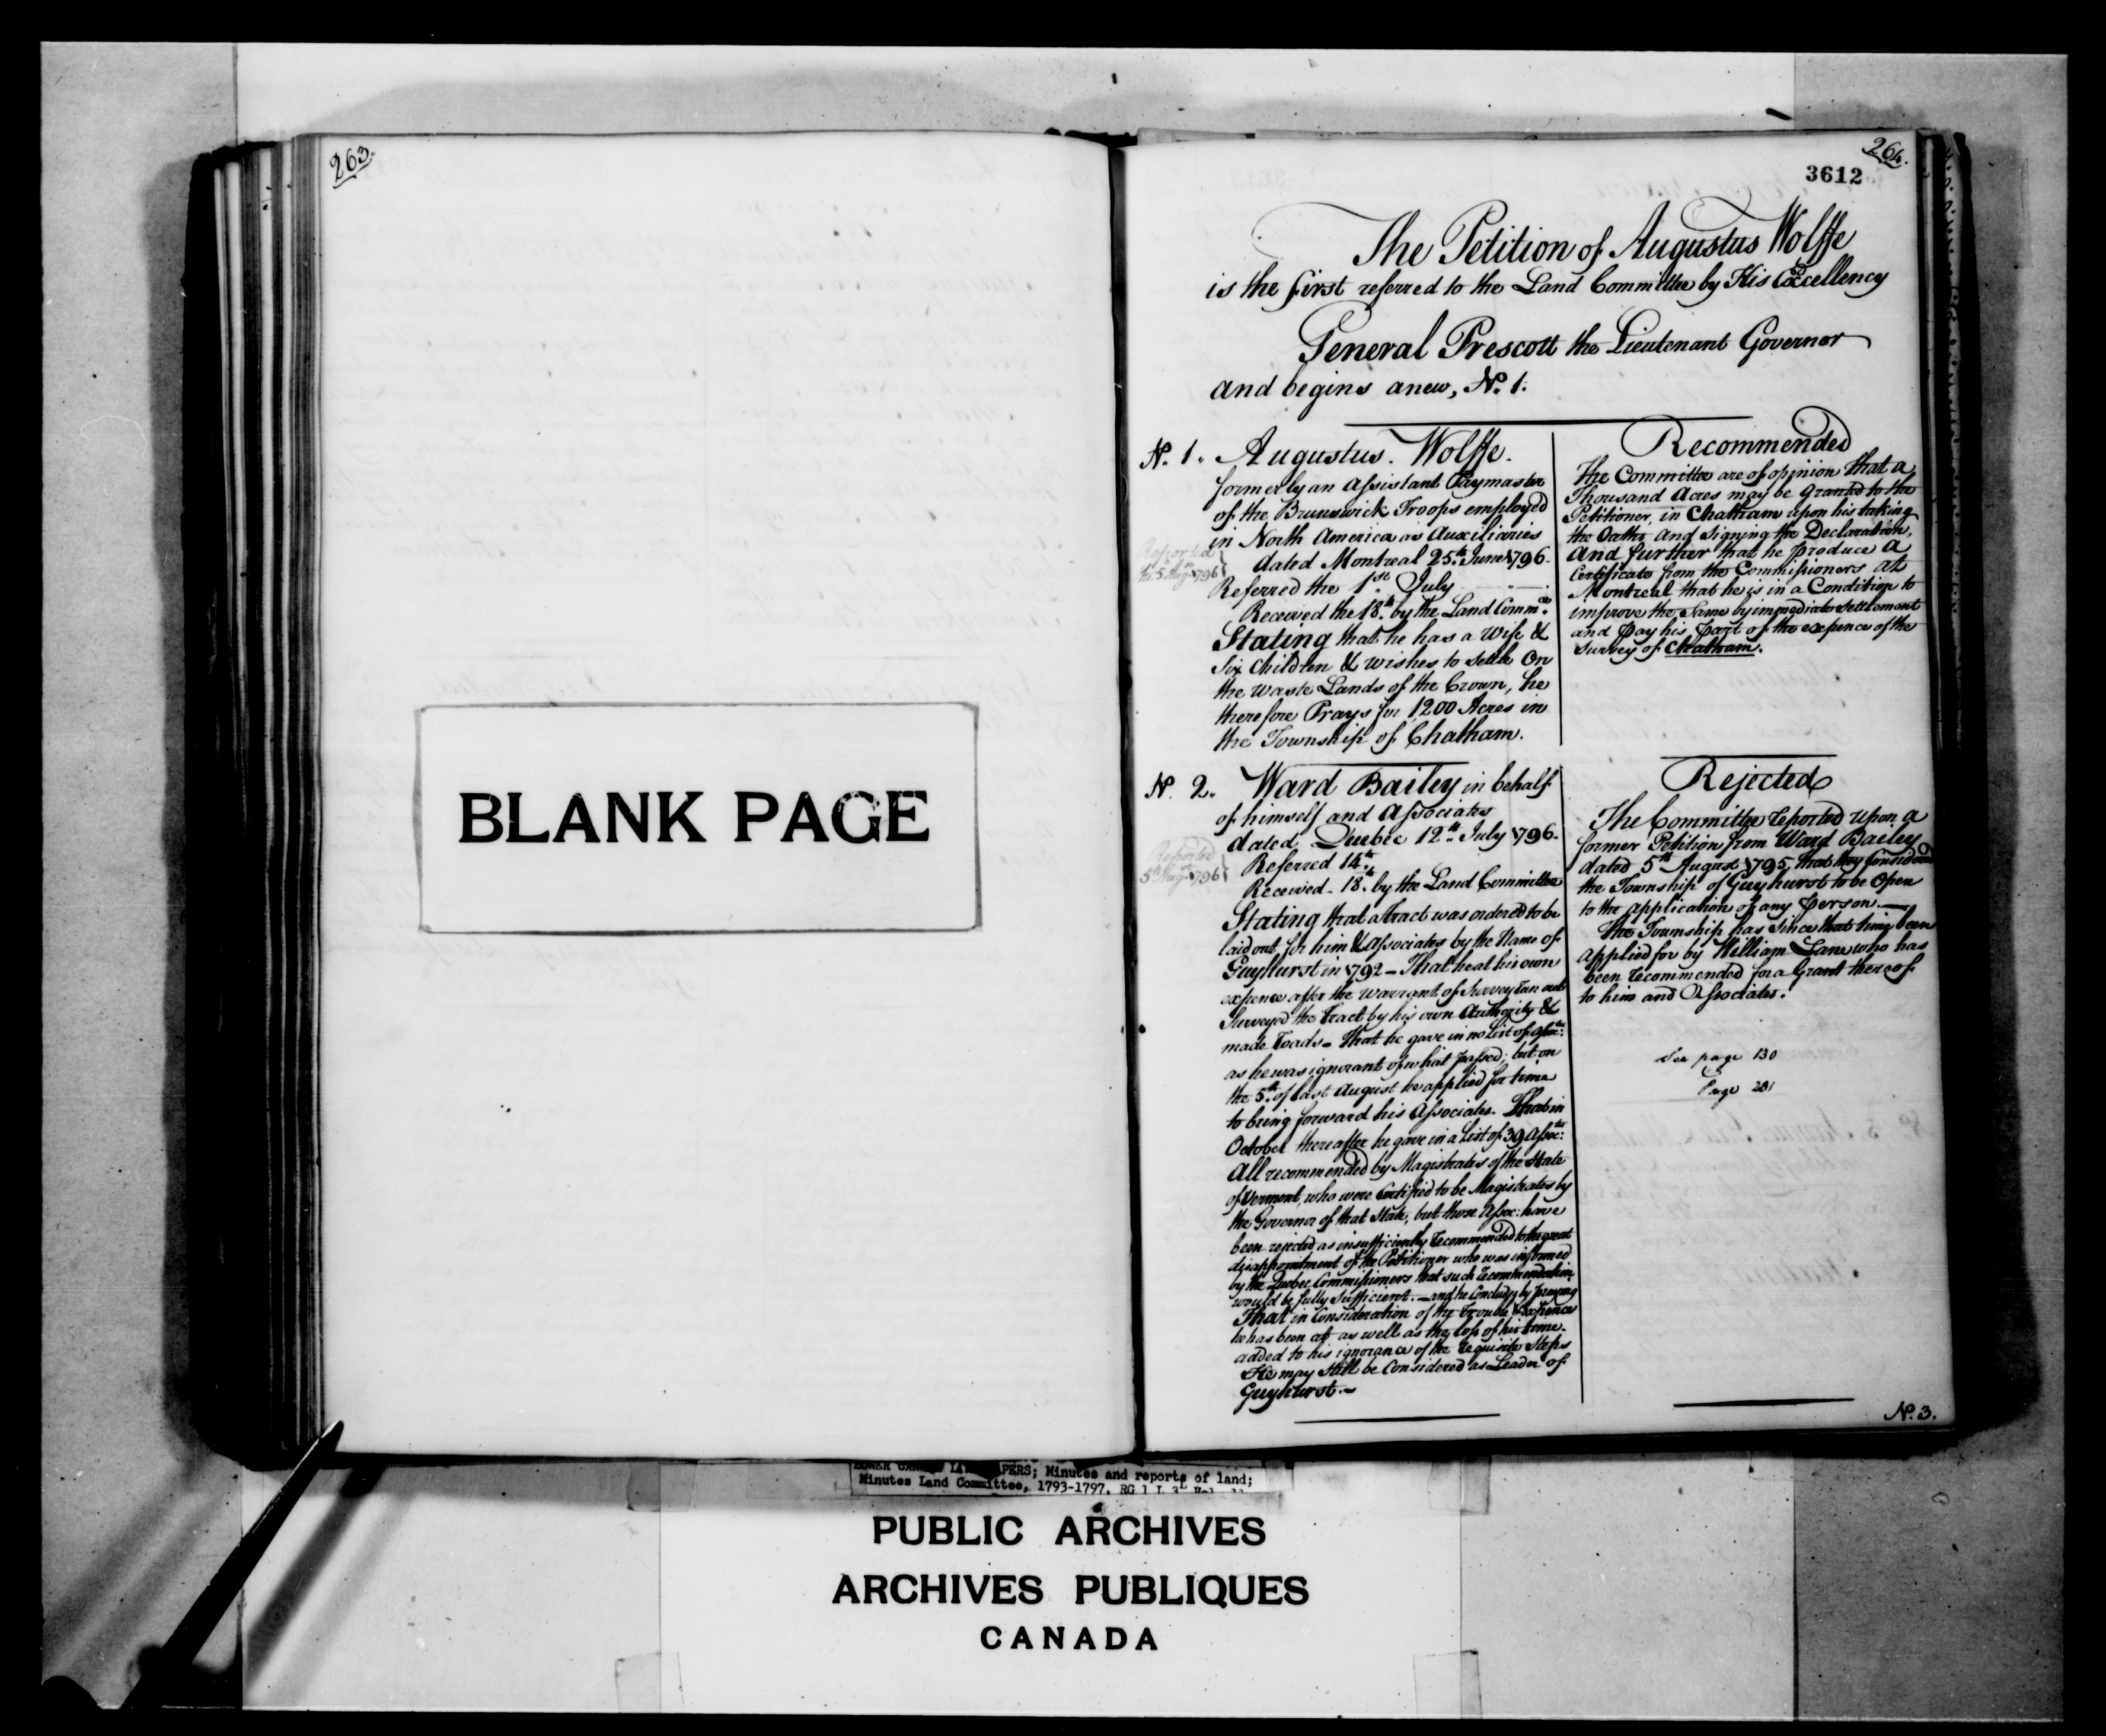 263.
BLANK PAGE
264.
3612
The Petition of Augustus Wolffe
is the first referred to the Land Committee by His Excellency
General Prescott the Lieutenant Governor
and begins anew, No. 1.
No. 1. Augustus Wolffe.
formerly an Assistant Paymaster
of the Brunswick Troops employed
in North America as Auxiliaries
dated Montreal 25th June 1796
Reported
the 5th Augt 1796
Referred the 1st July
Received the 18th by the Land Commee
Stating that he has a Wife &
Six Children & wishes to settle On
the waste Lands of the Crown, he
therefore Prays for 1200 Acres in
the Township of Chatham.
Recommended
The Committee are of opinion that a
Thousand Acres may be granted to the
Petitioner, in Chatham upon his taking
the Oaths and signing the Declaration,
And further that he produce a
Certificate from the Commissioners at
Montreal that he is in a Condition to
improve the same by immediate settlement
and pay his part of the expence of the
Survey of Chatham.
No. 2. Ward Bailey in behalf
of himself and Associates
dated Quebec 12th July 1796.
Reported
5th Augt 1796
Referred 14th
Received 18th by the Land Committee
Stating that a Tract was ordered to be
laid out for him & Associates by the Name of
Guyhurst in 1792 – That he at his own
expence after the Warrant of Survey ran out
Surveyed the Tract by his own Authority &
made Roads – That he gave in no List of Assoctes
as he was ignorant of what passed; but on
the 5th of last August he applied for time
to bring forward his Associates. That in
October thereafter he gave in a List of 39 Assoctes
All recommended by Magistrates of the State
of Vermont, who were Certified to be Magistrates by
the Governor of that State, but those Assoc: have
been rejected as insufficiently recommended to the great
disappointment of the Petitioner who was informed
by the Quebec Commissioners that such recommendation
would be fully Sufficient. – and he Concludes by praying
That in Consideration of the trouble & expence
he has been at as well as the loss of his time
added to his ignorance of the requisite Steps
He may still be Considered as Leader of
Guyhurst. –
Rejected
The Committee reported upon a
former Petition from Ward Bailey
dated 5th August 1795 that they considered
the Township of Guyhurst to be Open
to the application of any person. –
The Township has since that time been
applied for by William Lane who has
been recommended for a Grant thereof
to him and Associates.
See page 130
& Page 231
No. 3.
LOWER CANADA LAND PAPERS; Minutes and reports of land;
Minutes Land Committee, 1793-1797. RG 1 L 3L Vol.
PUBLIC ARCHIVES
ARCHIVES PUBLIQUES
CANADA